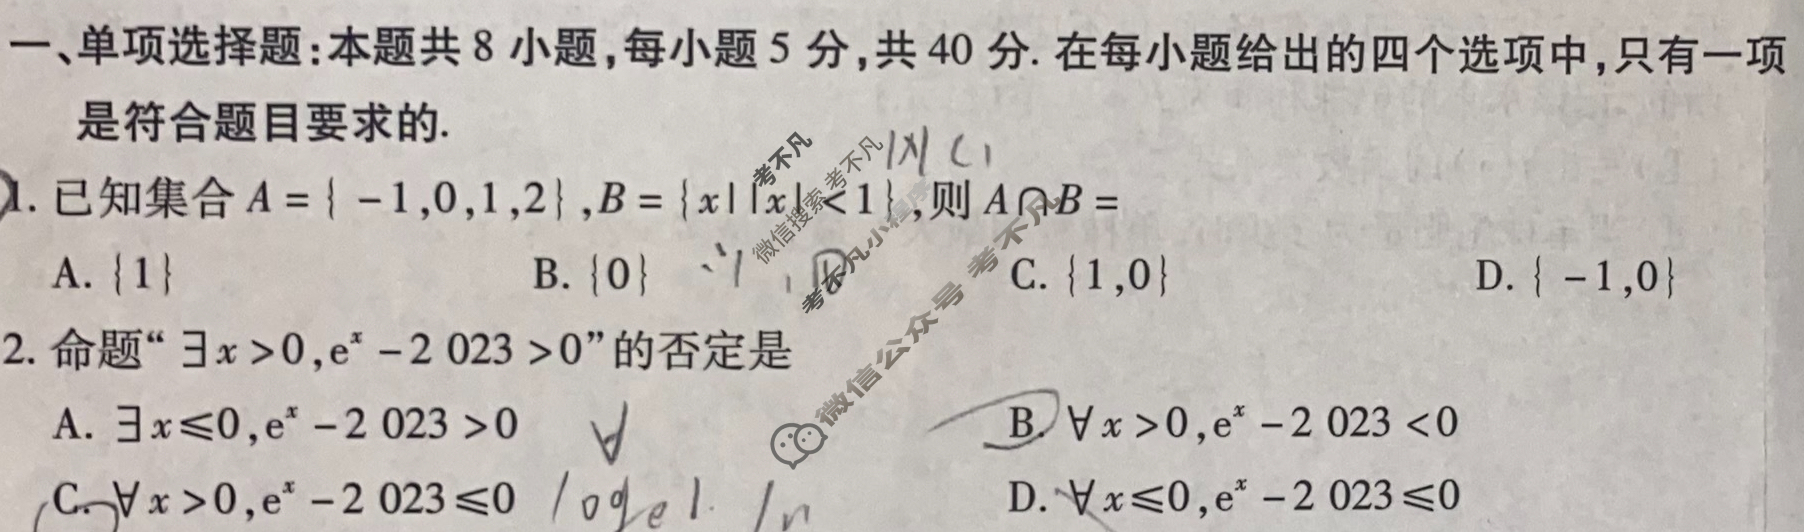 一、单项选择题:本题共8小题,每小题5分,共40分.在每小题给出的四个选项中,只有一项
是符合题目要求的.
|x|<1
1. 已知集合A={-1,0,1,2},B={x||x|<1},则A∩B=
A. {1} B. {0} C. {1,0} D. {-1,0}
2. 命题“∃x>0,eˣ-2 023>0”的否定是
A. ∃x≤0,eˣ-2 023>0 B. ∀x>0,eˣ-2 023<0
∀
C. ∀x>0,eˣ-2 023≤0 D. ∀x≤0,eˣ-2 023≤0
ln
考不凡
微信搜索 考不凡
考不凡小程序
微信公众号 考不凡